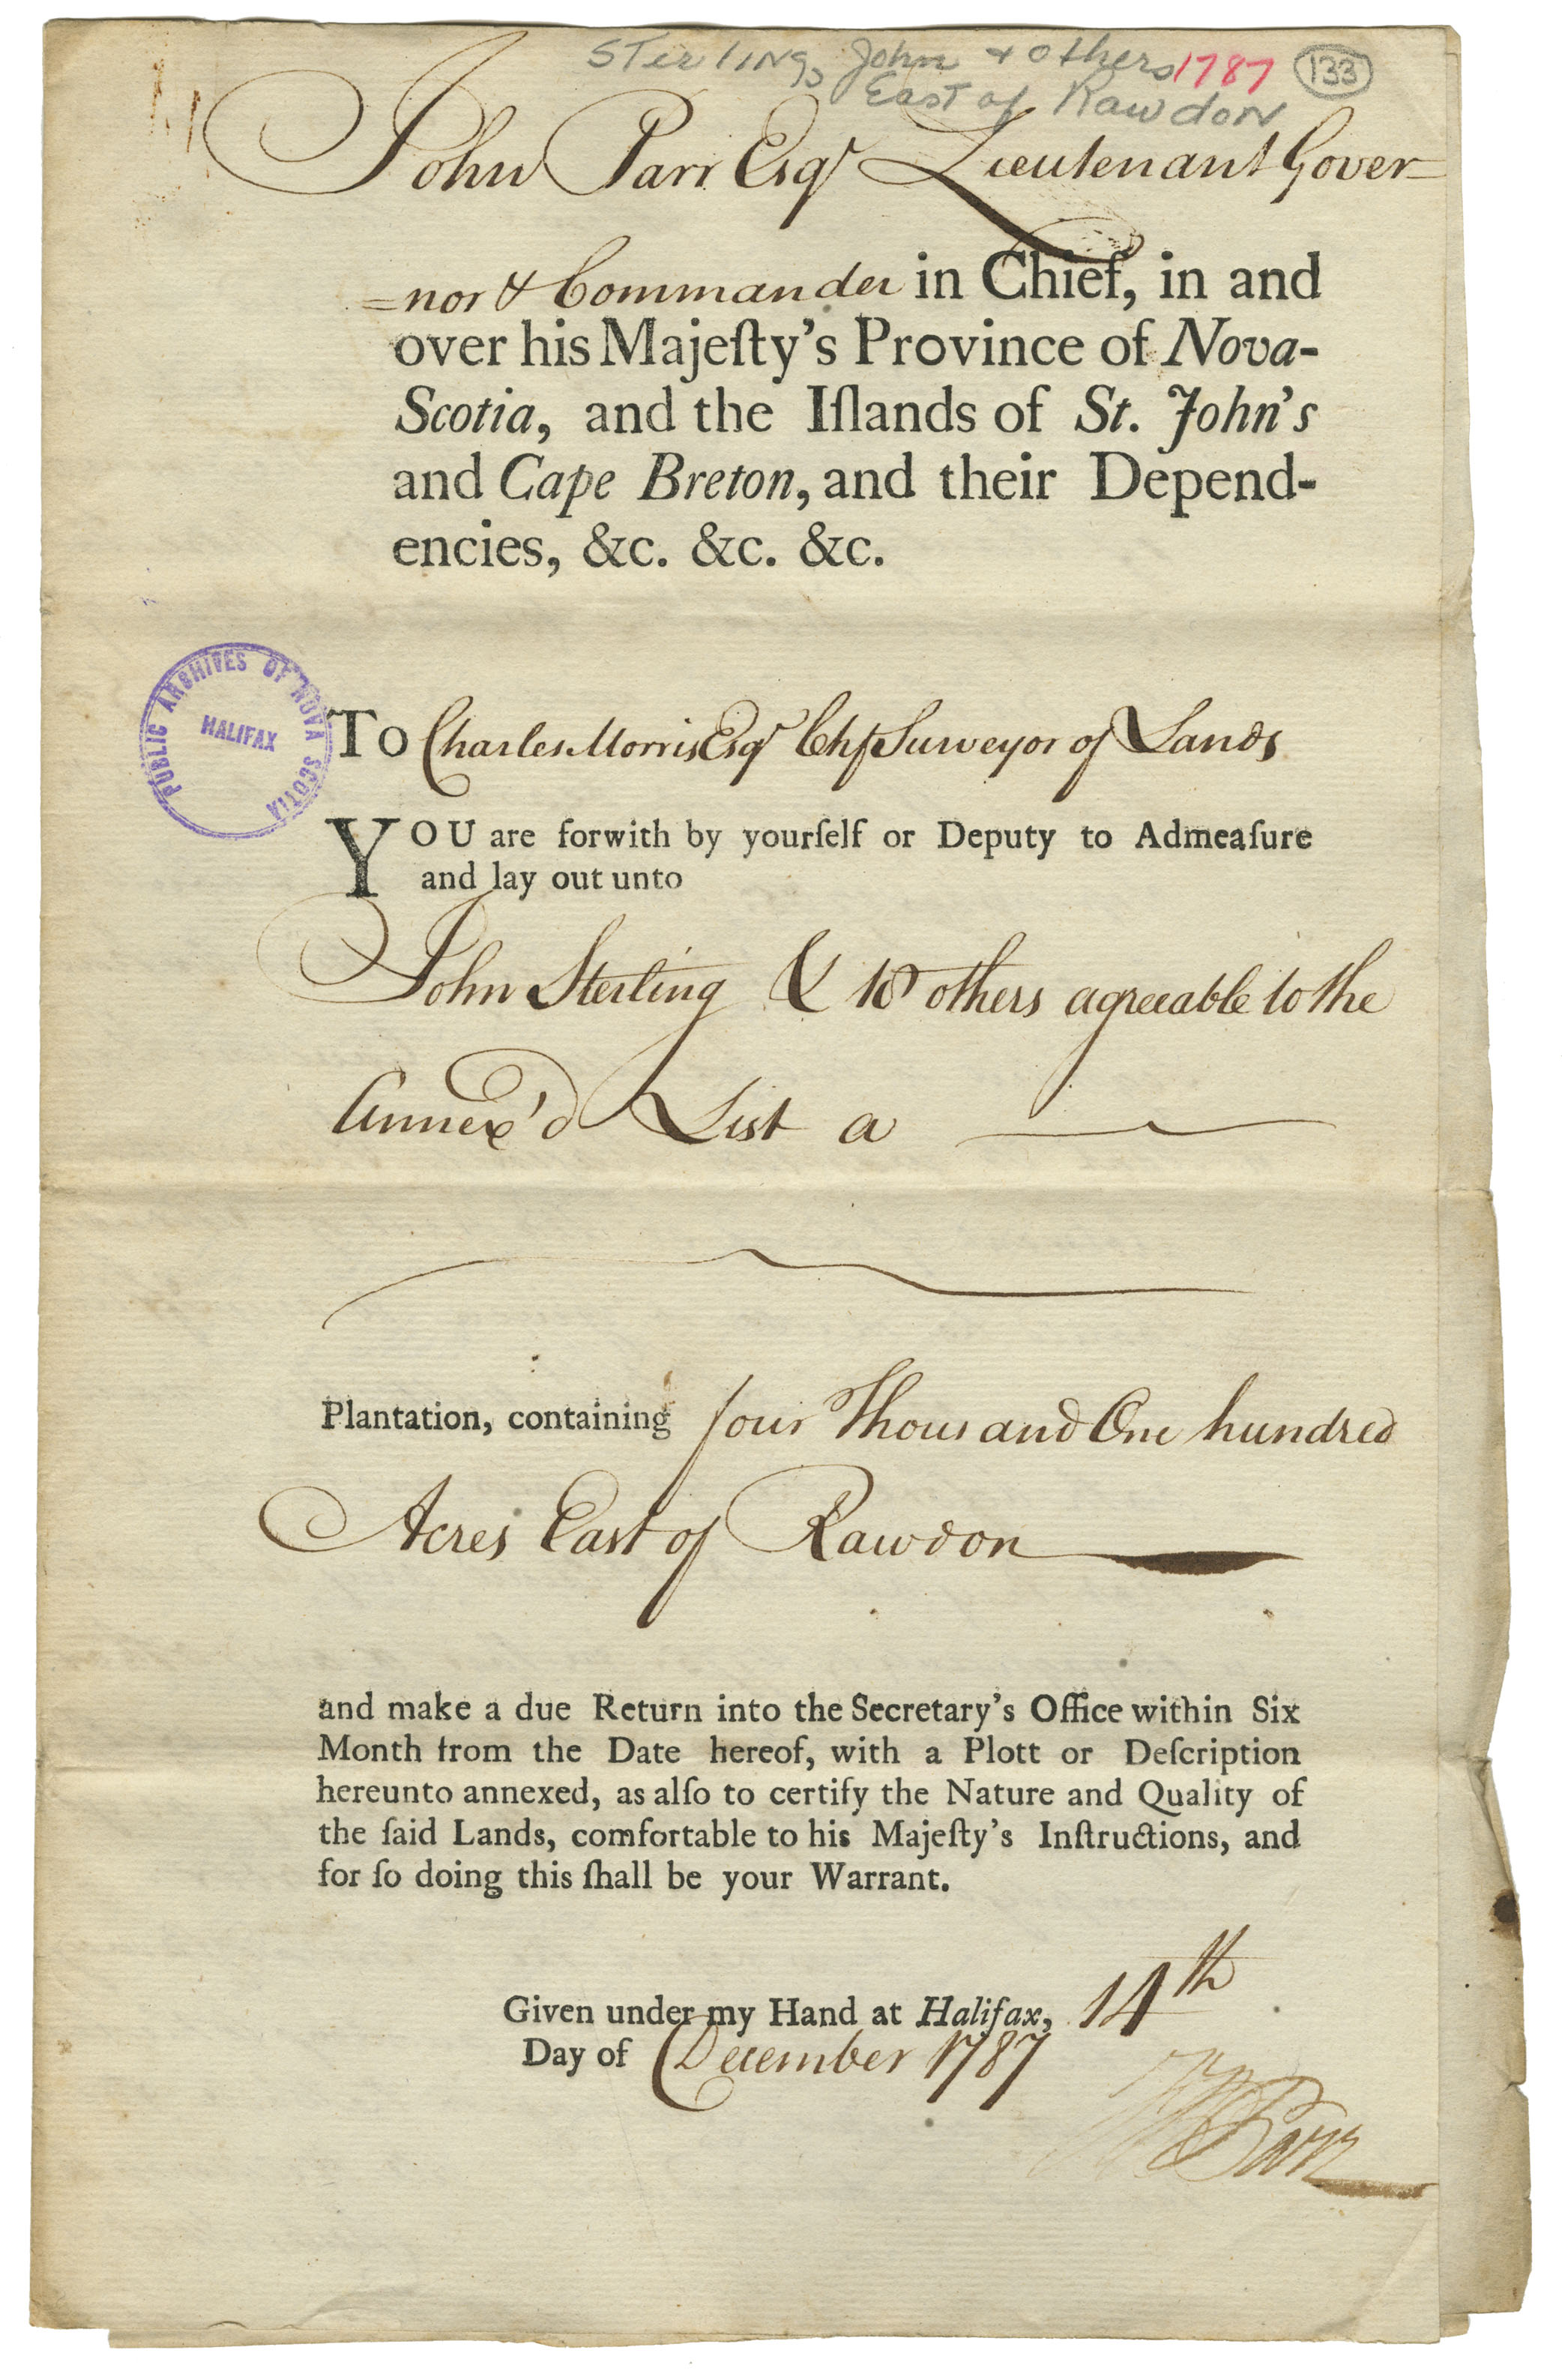 Sterling, John & others 1787 133
East of Rawdon
John Parr Esqr Lieutenant Gover=
=nor & Commander in Chief, in and
over his Majeſty's Province of Nova-
Scotia, and the Iſlands of St. John's
and Cape Breton, and their Depend-
encies, &c. &c. &c.
PUBLIC ARCHIVES OF NOVA SCOTIA
HALIFAX
To Charles Morris Esqr Chf Surveyor of Lands
YOU are forwith by yourſelf or Deputy to Admeaſure
and lay out unto
John Sterling & 18 others agreeable to the
Annex'd List a
Plantation, containing four Thousand One hundred
Acres East of Rawdon
and make a due Return into the Secretary's Office within Six
Month from the Date hereof, with a Plott or Deſcription
hereunto annexed, as alſo to certify the Nature and Quality of
the ſaid Lands, comfortable to his Majeſty's Inſtructions, and
for ſo doing this ſhall be your Warrant.
Given under my Hand at Halifax, 14th
Day of December 1787
Parr